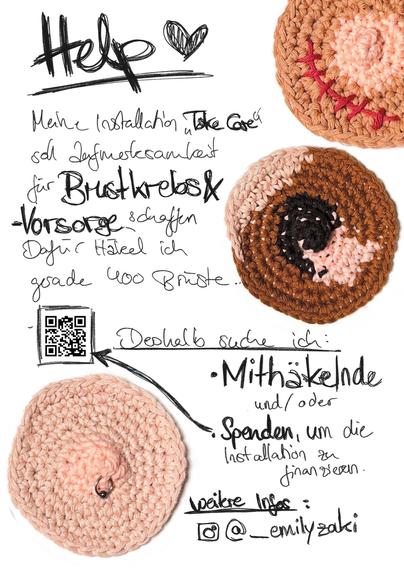 Help
Meine Installation „Take Care“
soll Aufmerksamkeit
für Brustkrebs &
-Vorsorge schaffen
Dafür Häkel ich
gerade 400 Brüste..
Deshalb suche ich:
• Mithäkelnde
und/oder
• Spenden, um die
Installation zu
finanzieren.
weitere Infos:
@_emilyzaki